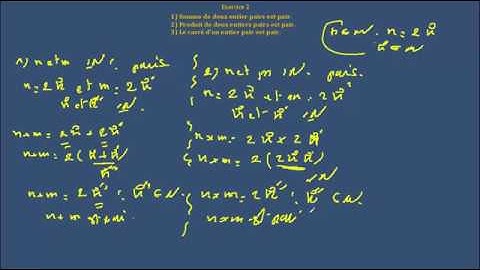 Exercice 2
1) Somme de deux entier pairs est pair.
2) Produit de deux entiers pairs est pair.
3) Le carré d'un entier pair est pair.
n ∈ IN. n = 2k
k ∈ IN
1) n et m IN. pairs
n = 2k et m = 2k'
k et k' IN.
n+m = 2k + 2k'
n+m = 2(k+k')
n+m = 2k'' : k'' ∈ IN.
n+m est pair.
2) n et m IN. pairs.
n = 2k et m = 2k'
k et k' IN
n×m = 2k × 2k'
n×m = 2(2kk')
IN
n×m = 2k'' : k'' ∈ IN.
n×m est pair